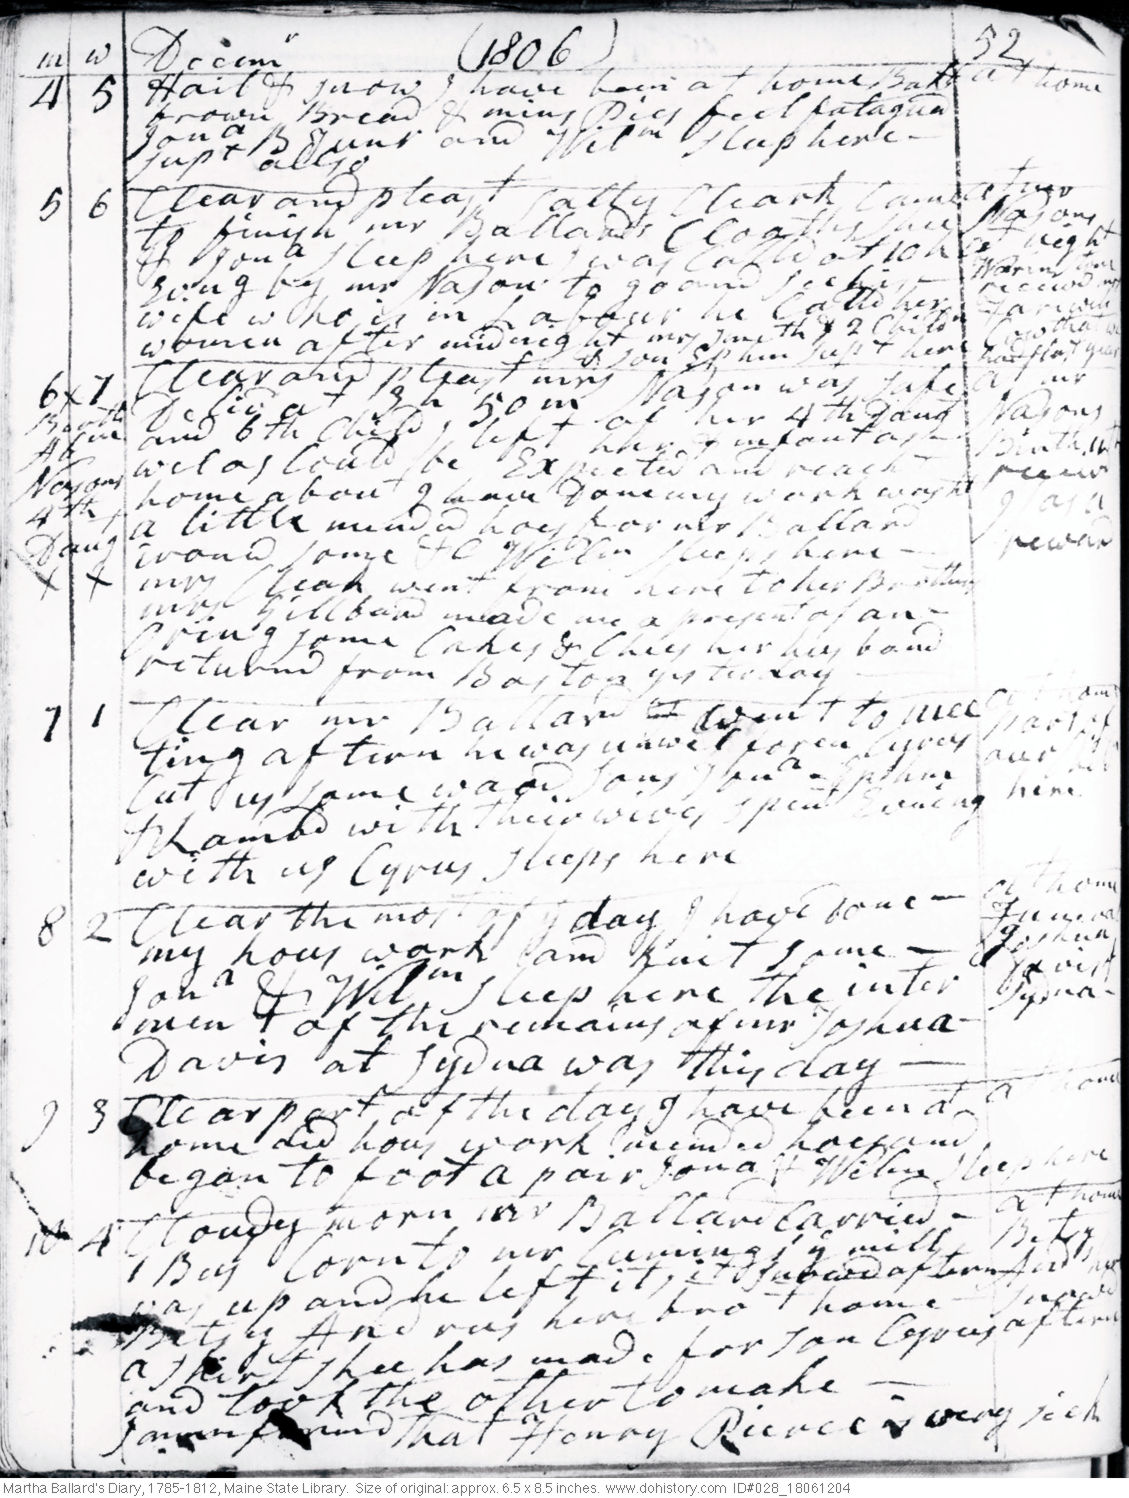 m w Decem^r (1806) 52
4 5 Hail & snow I have been at home Bakt at home
brown Bread & mins Pies feel fatagud
Jon^a B Juns and Wil^m sleep here -
supt allso
5 6 Clear and pleast Sally Cleark Came at mr
to finish mr Ballards Cloaths shee Nasons
& Jon^a sleep here I was Calld at 10 h night
Evng by mr Nason to go and see his
wife who is in Labour he Calld her
women after midnight mrs Smith & 2 Childn
& son Ephm supt here
6 x 7 Clear and pleast mrs Nason was safe at mr
Deliv at 3 h 50 m of her 4th Daug Nasons
Birth and 6th Child I left her & infant as Birth
wel as Could be Expected and reacht
Nasons home about 9 have Done my work washt
4th a little mended hoes for mr Ballard
Daug wound some &C Wilm sleeps here - reward
x x mrs Cleark went from here to her Brothers
mrs Gillbard made me a present of an
oring some Cakes & Chees her husband
returnd from Boston yesterday
7 1 Clear mr Ballard went to mee at home
ting aftern he was unwel foren Cyrus part of
Cut us some wood sons Jon^a Ephm our
& Lambd with their wives spent Evning here
with us Cyrus sleeps here
8 2 Clear the most of y day I have done - at home
my hous work and knit some - Funeral
Jon^a & Wil^m sleep here the inter Joshua
ment of the remains of mr Joshua Davis
Davis at Sydna was this day - Sydna -
9 3 Clear part of the day I have been at at home
home did hous work mended hoes and
began to foot a pair Jona & Wilm sleep here
10 4 Cloudy morn mr Ballard Carried - at home
1 Bus Corn to mr Cumings's y mill Betsy
was up and he left it, it snowed aftern Andrus here
Betsy Andrus here bro't home - snowd
a shirt shee has made for son Cyrus aftern
and took the other to make -
I am informd that Henry Pierce is very sick
Martha Ballard's Diary, 1785-1812, Maine State Library. Size of original: approx. 6.5 x 8.5 inches. www.dohistory.com ID#028_18061204